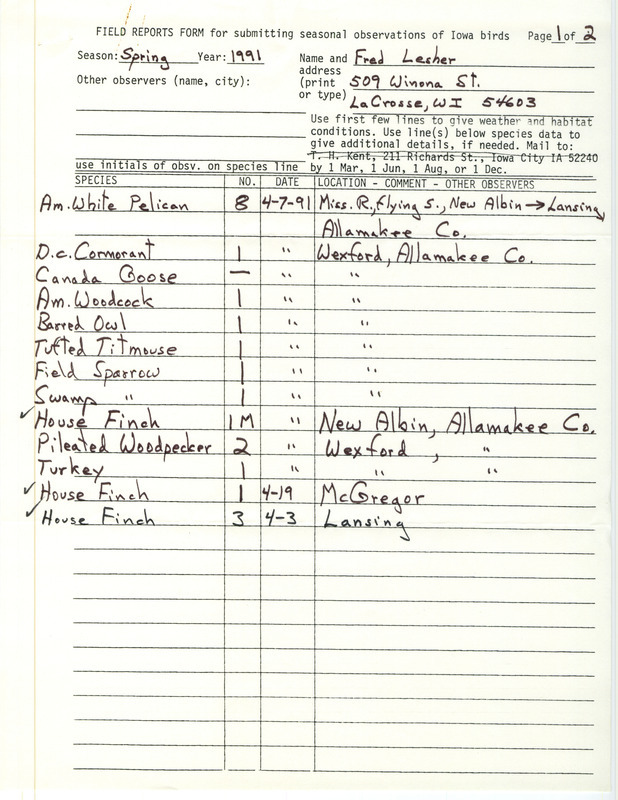 FIELD REPORTS FORM for submitting seasonal observations of Iowa birds Page 1 of 2
Season: Spring Year: 1991 Name and Fred Lesher
address
Other observers (name, city): (print 509 Winona St.
or type) LaCrosse, WI 54603
Use first few lines to give weather and habitat
conditions. Use line(s) below species data to
give additional details, if needed. Mail to:
T. H. Kent, 211 Richards St., Iowa City IA 52240
use initials of obsv. on species line by 1 Mar, 1 Jun, 1 Aug, or 1 Dec.
SPECIES NO. DATE LOCATION - COMMENT - OTHER OBSERVERS
Am. White Pelican 8 4-7-91 Miss. R., flying S., New Albin → Lansing,
Allamakee Co.
D.c. Cormorant 1 " Wexford, Allamakee Co.
Canada Goose — " "
Am. Woodcock 1 " "
Barred Owl 1 " "
Tufted Titmouse 1 " "
Field Sparrow 1 " "
Swamp " 1 " "
✓ House Finch 1M " New Albin, Allamakee Co.
Pileated Woodpecker 2 " Wexford, "
Turkey 1 " " "
✓ House Finch 1 4-19 McGregor
✓ House Finch 3 4-3 Lansing